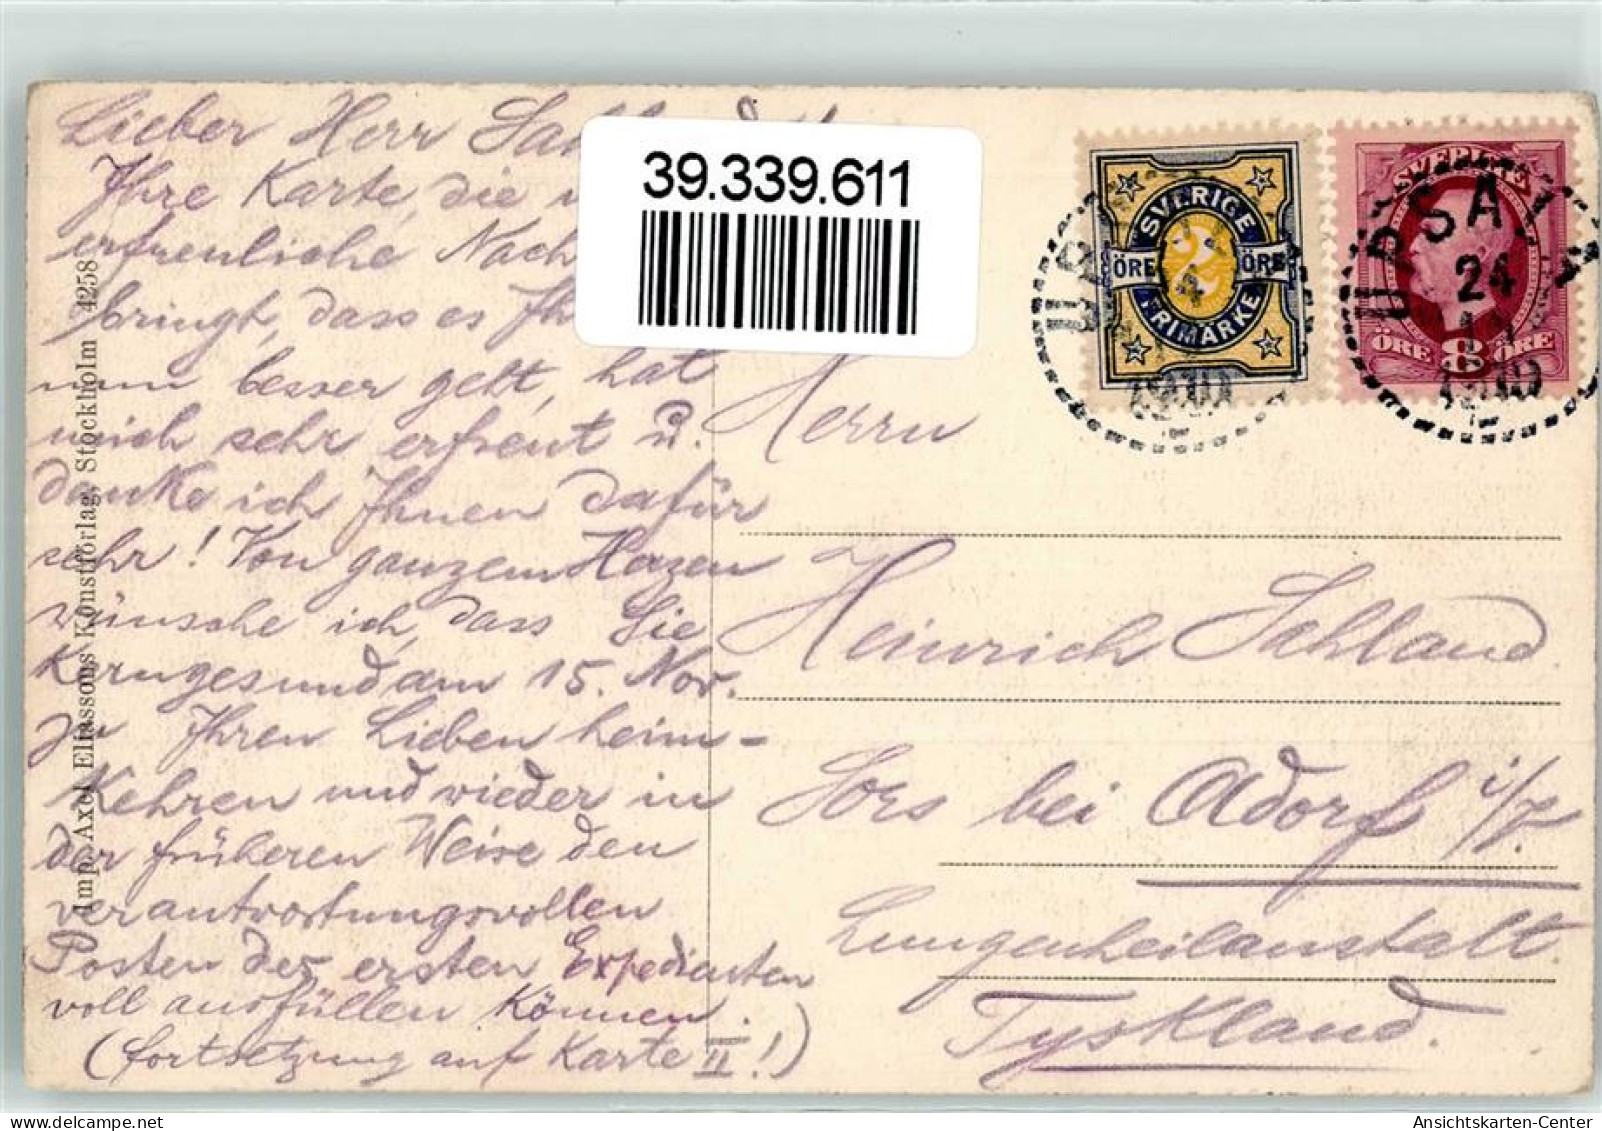 Lieber Herr
39.339.611
Ihre Karte, die
erfreuliche Nach
bringt, dass es Ih
nun besser geht, hat
mich sehr erfreut u.
danke ich Ihnen dafür
sehr! Von ganzem Herzen
wünsche ich, dass Sie
Kerngesund am 15. Nov.
zu Ihren Lieben heim-
Kehren und wieder in
der früheren Weise den
verantwortungsvollen
Posten des ersten Expedienten
voll ausfüllen können.
(Fortsetzung auf Karte II!)
Imp. Axel Eliassons Konstförlag, Stockholm 4258
SVERIGE
ÖRE 2 ÖRE
FRIMÄRKE
SVERIGE
ÖRE 8 ÖRE
UPSALA
24
11
Herrn
Heinrich Sahland
Sors bei Adorf i/V.
Lungenheilanstalt.
Tyskland.
Ansichtskarten-Center